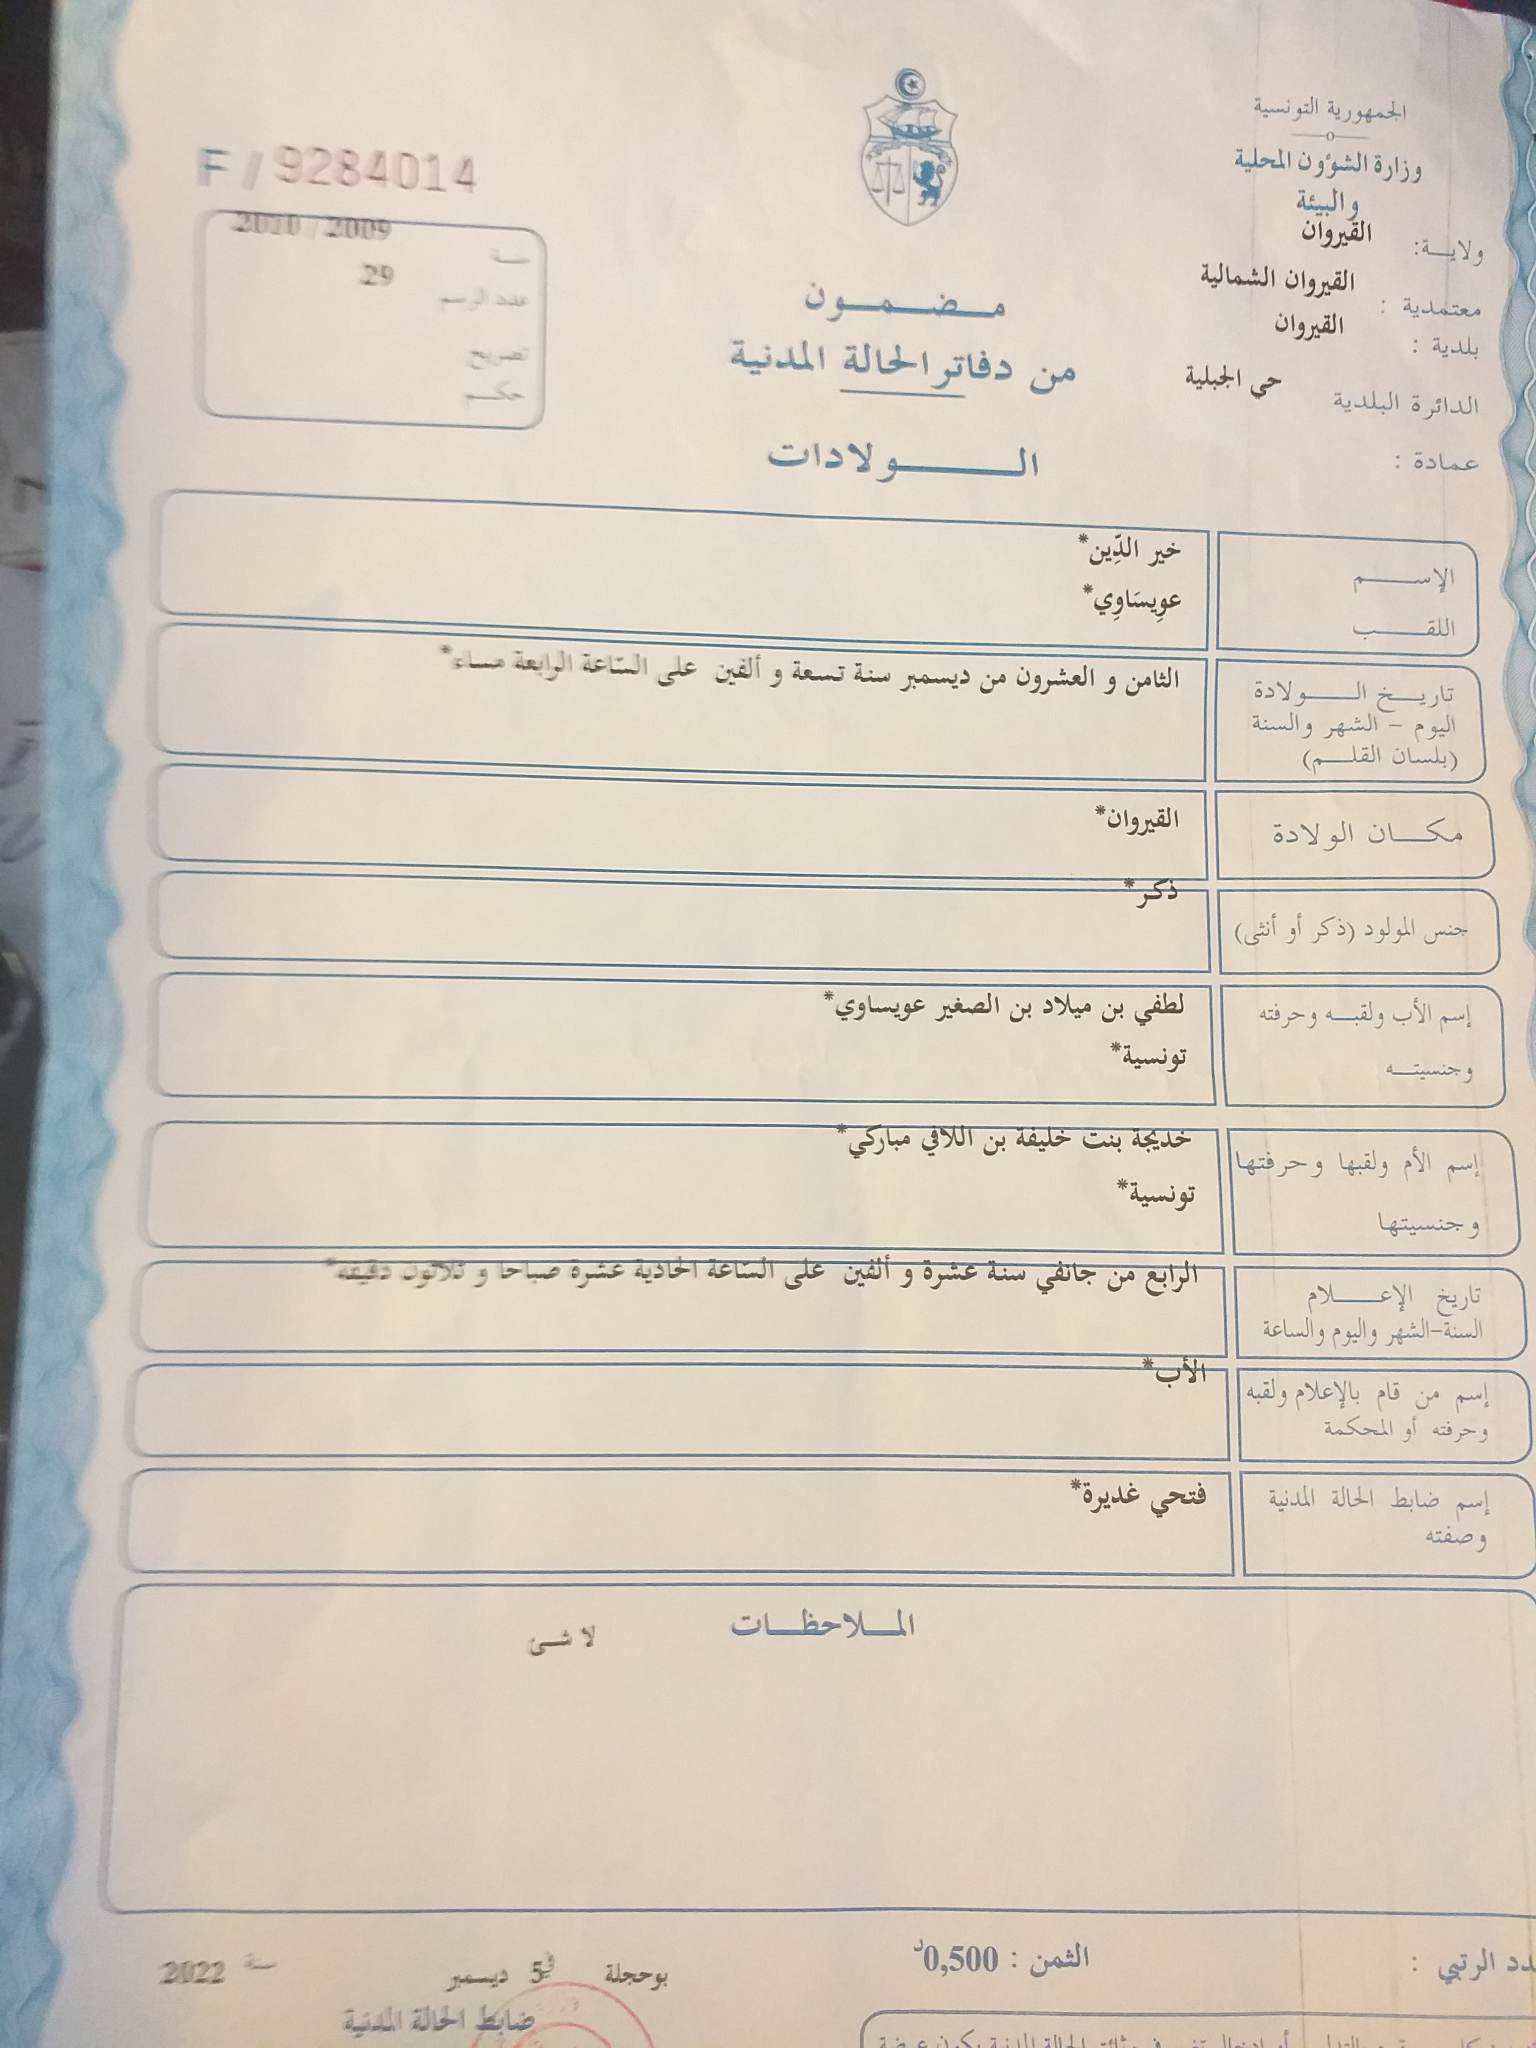 الجمهورية التونسية
وزارة الشؤون المحلية
والبيئة
ولايـة: القيروان
معتمدية : القيروان الشمالية
بلدية : القيروان
الدائرة البلدية حي الجبلية
عمادة :
F / 9284014
سنـة 2010 / 2009
عدد الرسم 29
تصريح
حكـم
مـضـمـون
من دفاتر الحالة المدنية
الـولادات
الإسـم خير الدّين*
اللقـب عوِيسَاوِي*
تاريـخ الـولادة الثامن و العشرون من ديسمبر سنة تسعة و ألفين على السّاعة الرابعة مساء*
اليوم - الشهر والسنة
(بلسان القلـم)
مكـان الولادة القيروان*
جنس المولود (ذكر أو أنثى) ذكر*
إسم الأب ولقبـه وحرفته لطفي بن ميلاد بن الصغير عويساوي*
وجنسيتـه تونسية*
إسم الأم ولقبها وحرفتها خديجة بنت خليفة بن اللافي مباركي*
وجنسيتها تونسية*
تاريخ الإعـلام الرابع من جانفي سنة عشرة و ألفين على السّاعة الحادية عشرة صباحا و ثلاثون دقيقة*
السنة-الشهر واليوم والساعة
إسم من قام بالإعلام ولقبه الأب*
وحرفته أو المحكمة
إسم ضابط الحالة المدنية فتحي غديرة*
وصفته
المـلاحظـات
لا شئ
ـدد الرتبي :
الثمن : 0,500د
بوحجلة في 5 ديسمبر سنة 2022
ضابط الحالة المدنية